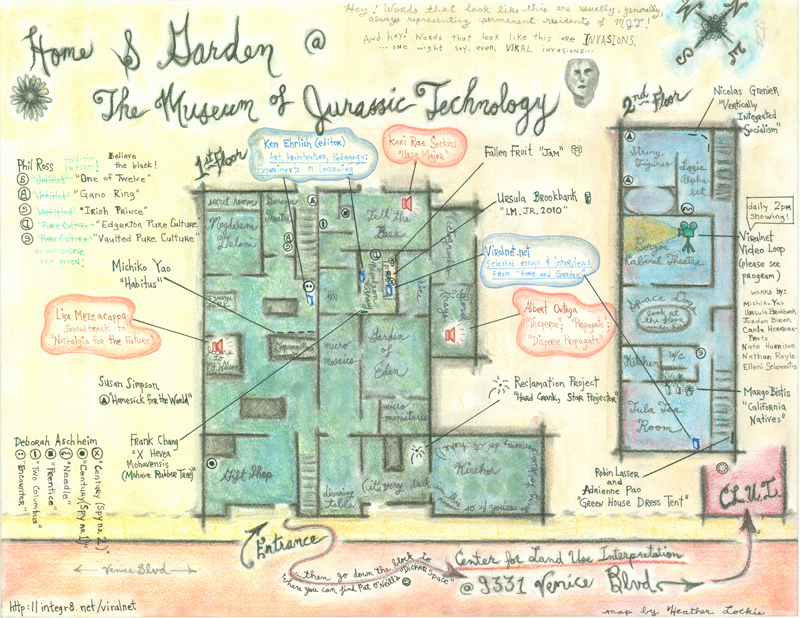 Hey! Words that look like this are usually, generally,
always representing permanent residents of MJT!
And hey! Words that look like this are INVASIONS.
...one might say, even, VIRAL invasions...
Home & Garden @
The Museum of Jurassic Technology
1st Floor
2nd Floor
Nicolas Grenier
"Vertically
Integrated
Socialism"
Ken Ehrlich (editor)
Art, Architecture, Pedagogy:
Experiments in Learning
Kari Rae Seekins
"Ursa Major"
Fallen Fruit "Jam"
Ursula Brookbank
"LM, JR. 2010"
Phil Ross
Believe
the black!
"Untitled" "One of Twelve"
"Untitled" "Gano Ring"
"Untitled" "Irish Prince"
"Pure Culture" "Edgerton Pure Culture"
"Pure Culture" "Vaulted Pure Culture"
do not believe
the green!
Michiko Yao
"Habitus"
Lisa Mezzacappa
Soundtrack to
"Nostalgia for the Future"
Viralnet.net
Selected essays & interviews
from "Home and Garden"
Albert Ortega
"Disperse," "Propagate,"
"Disperse Propagate!"
daily 2pm
showing!
Viralnet
Video Loop
(please see
program)
works by:
Michiko Yao
Ursula Brookbank
Jordan Biren
Carla Herrera-
Prats
Nate Harrison
Nathan Rayle
Elleni Sclavenitis
Susan Simpson
"Homesick for the World"
Reclamation Project
"Hard Crank, Star Projector"
Frank Chang
"X Hevea
Mohavensis
(Mohave Rubber Tree)"
Margo Bistis
"California
Natives"
Robin Lasser
and
Adrienne Pao
"Green House Dress Tent"
Deborah Aschheim
"Encounter"
"Two Columbus"
"Prentice"
"Needle"
"Century (Spy no. 1)"
"Century (Spy no. 2)"
secret room
Magdalena
Delani
Baroque
Theatre
Tell the
Bees
micro
mosaics
Garden
of
Eden
micro
miniatures
Gift Shop
(it's very dark
Kircher
String
Figures
Logic
Alpha-
bet
Borzoi
Kabinet Theatre
Space Dog
look at
the floor
Kitchen
W/C
Tula Tea
Room
C.L.U.I.
Entrance
Venice Blvd
...then go down the block to
where you can find Pat O'Neill's "Dichen Space"
Center for Land Use Interpretation
@ 9331 Venice Blvd.
http://integr8.net/viralnet
map by Heather Lockie